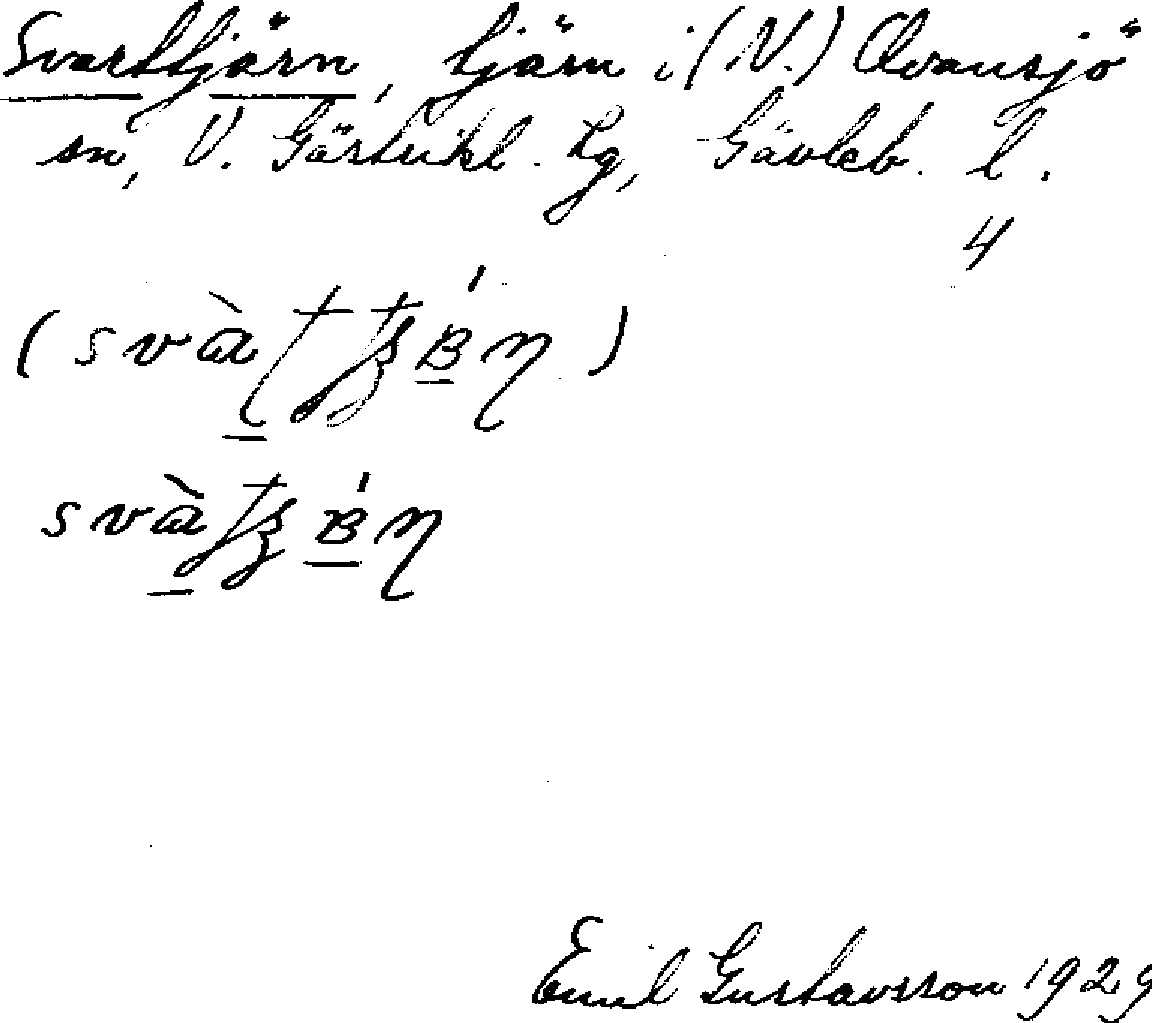 Svarttjärn, tjärn i (N.) Ovansjö
sn, V. Gästrikl. hg, Gävleb. l.
4
Emil Gustavsson 1929